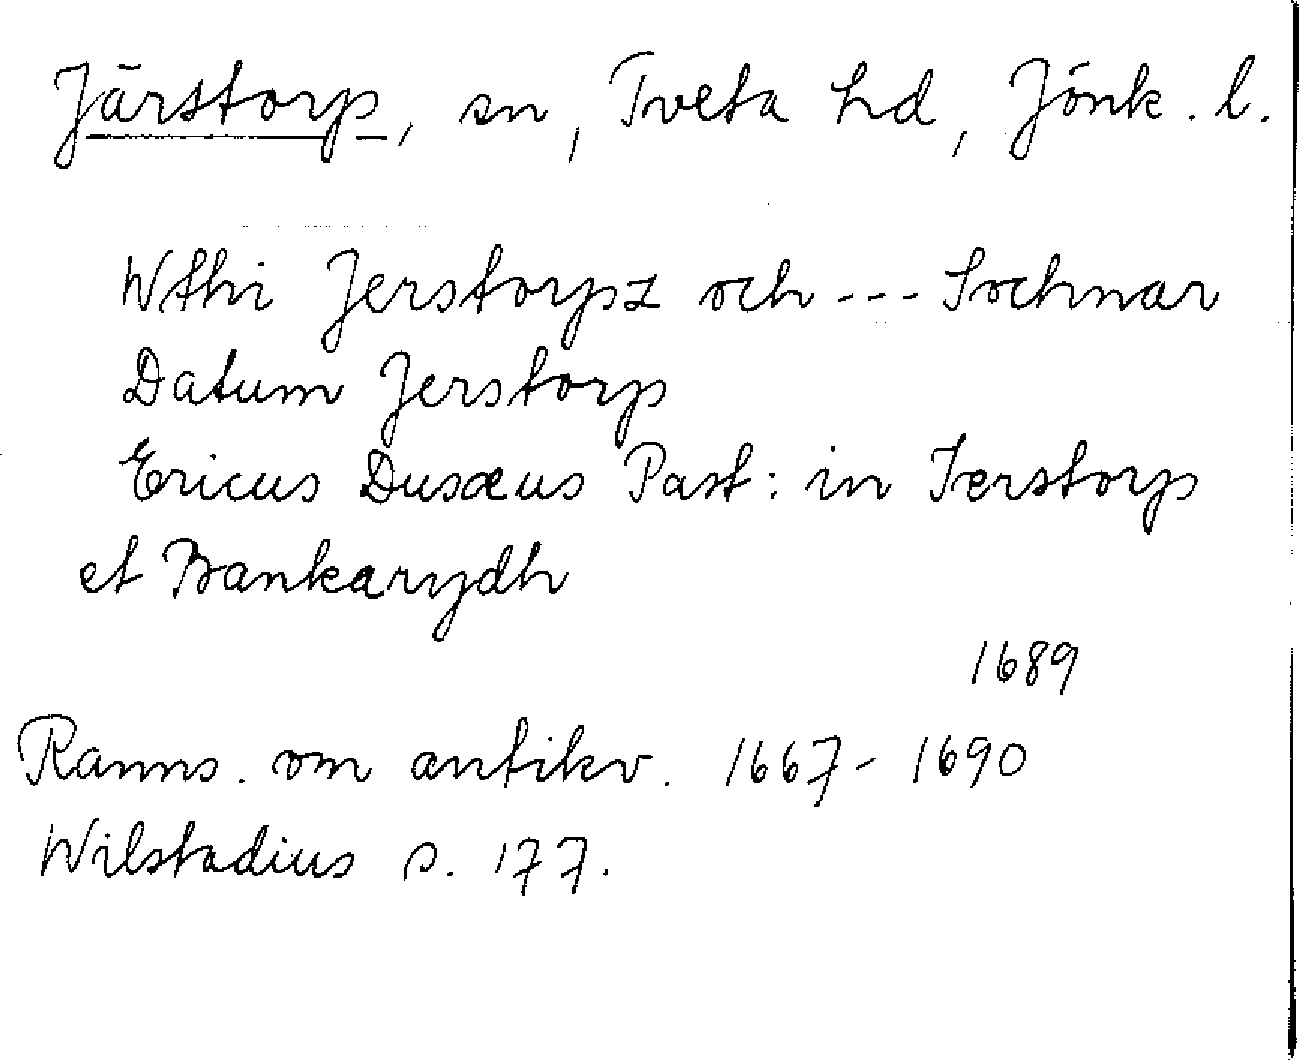 Järstorp, sn, Tveta hd, Jönk. l.
Wthi Jerstorpz och --- Sochnar
Datum Jerstorp
Ericus Dusæus Past: in Ierstorp
et Bankarydh
1689
Ranns. om antikv. 1667-1690
Wilstadius s. 177.